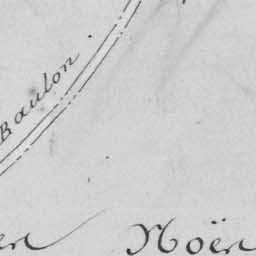 Baulon
Noën